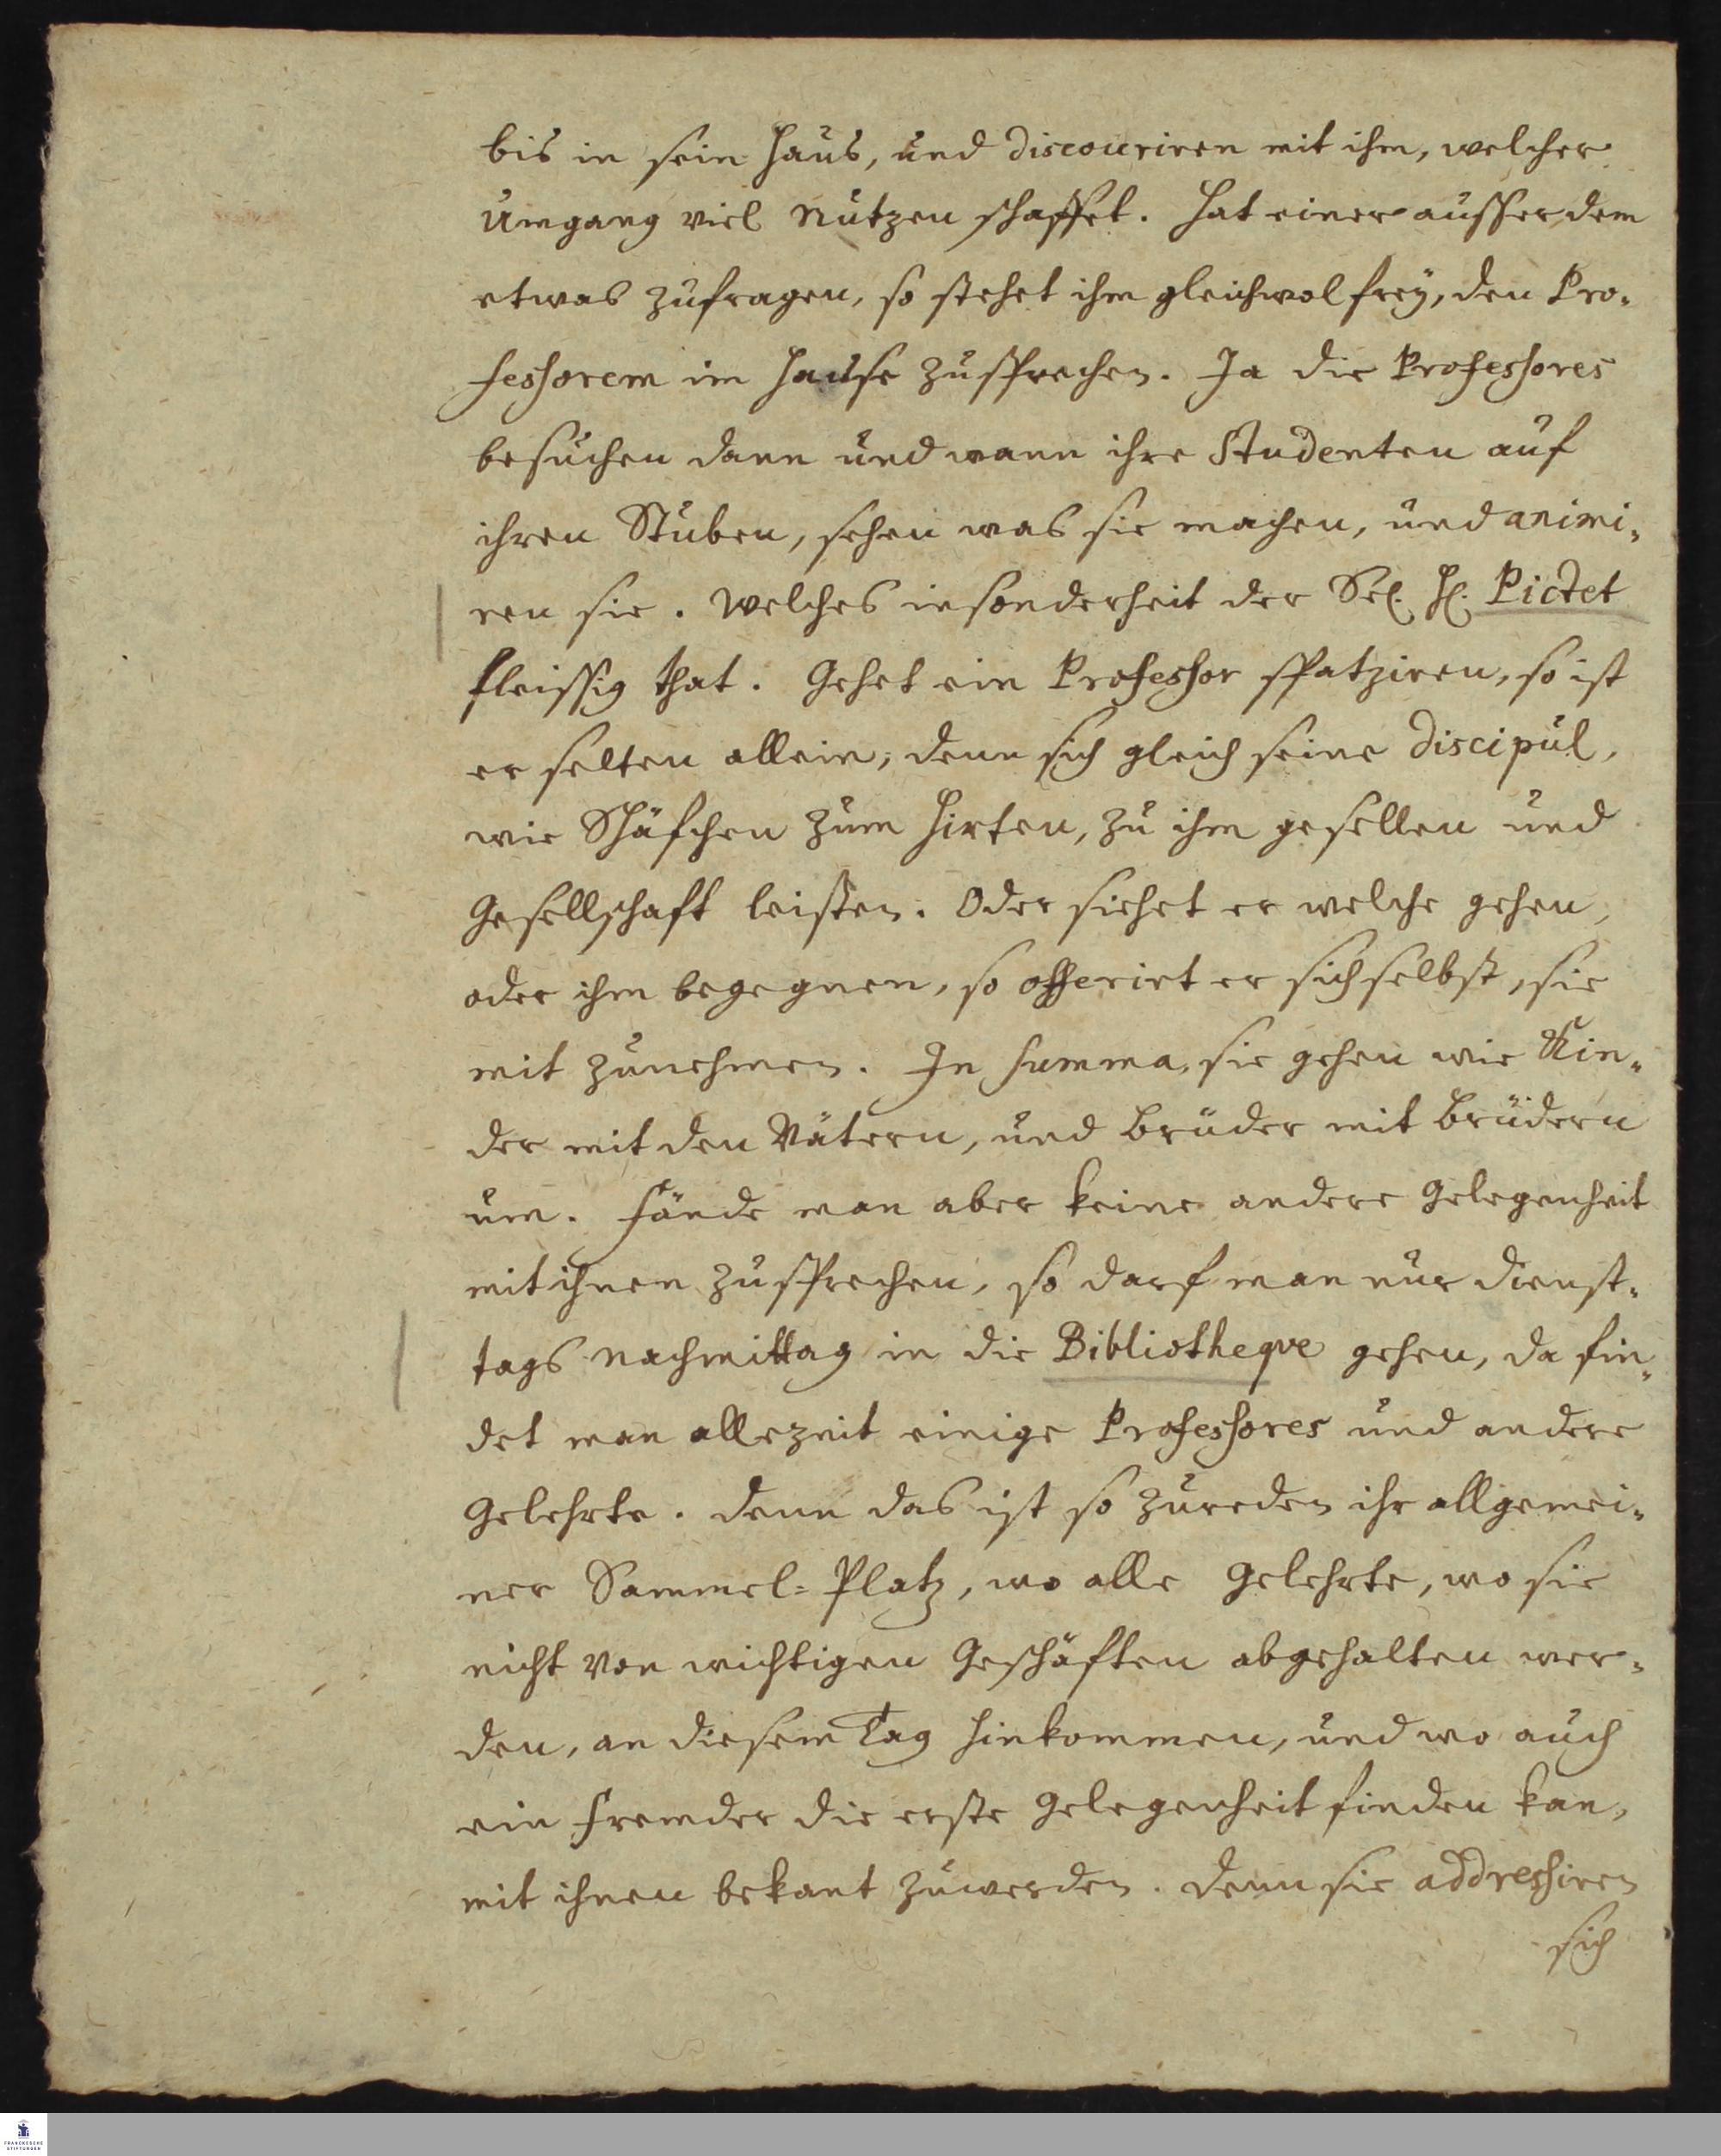 bis in sein Haus, und discouriren mit ihm, welcher
Umgang viel Nutzen schaffet. Hat einer ausser dem
etwas zufragen, so stehet ihm gleichwol frey, den Pro-
fessorem im Hause zusprechen. Ja die Professores
besuchen dann und wann ihre Studenten auf
ihren Stuben, sehen was sie machen, und animi-
ren sie. Welches insonderheit der Sel. H. Pictet
fleissig that. Gehet ein Professor spatziren, so ist
er selten allein, denn sich gleich seine Discipul,
wie Schäfchen zum Hirten, zu ihm gesellen und
Gesellschaft leisten. Oder siehet er welche gehen,
oder ihm begegnen, so offerirt er sich selbst, sie
mit zunehmen. In Summa, sie gehen wie Kin-
der mit den Vätern, und Brüder mit Brüdern
um. Fände man aber keine andere Gelegenheit
mit ihnen zusprechen, so darf man nur Dienst-
tags Nachmittag in die Bibliotheqve gehen, da fin-
det man allezeit einige Professores und andere
Gelehrte. Denn das ist so zureden ihr allgemei-
ner Sammel-Platz, wo alle Gelehrte, wo sie
nicht von wichtigen Geschäften abgehalten wer-
den, an diesem Tag hinkommen, und wo auch
ein Fremder die erste Gelegenheit finden kan,
mit ihnen bekant zuwerden. Denn sie addressiren
sich
FRANCKESCHE
STIFTUNGEN